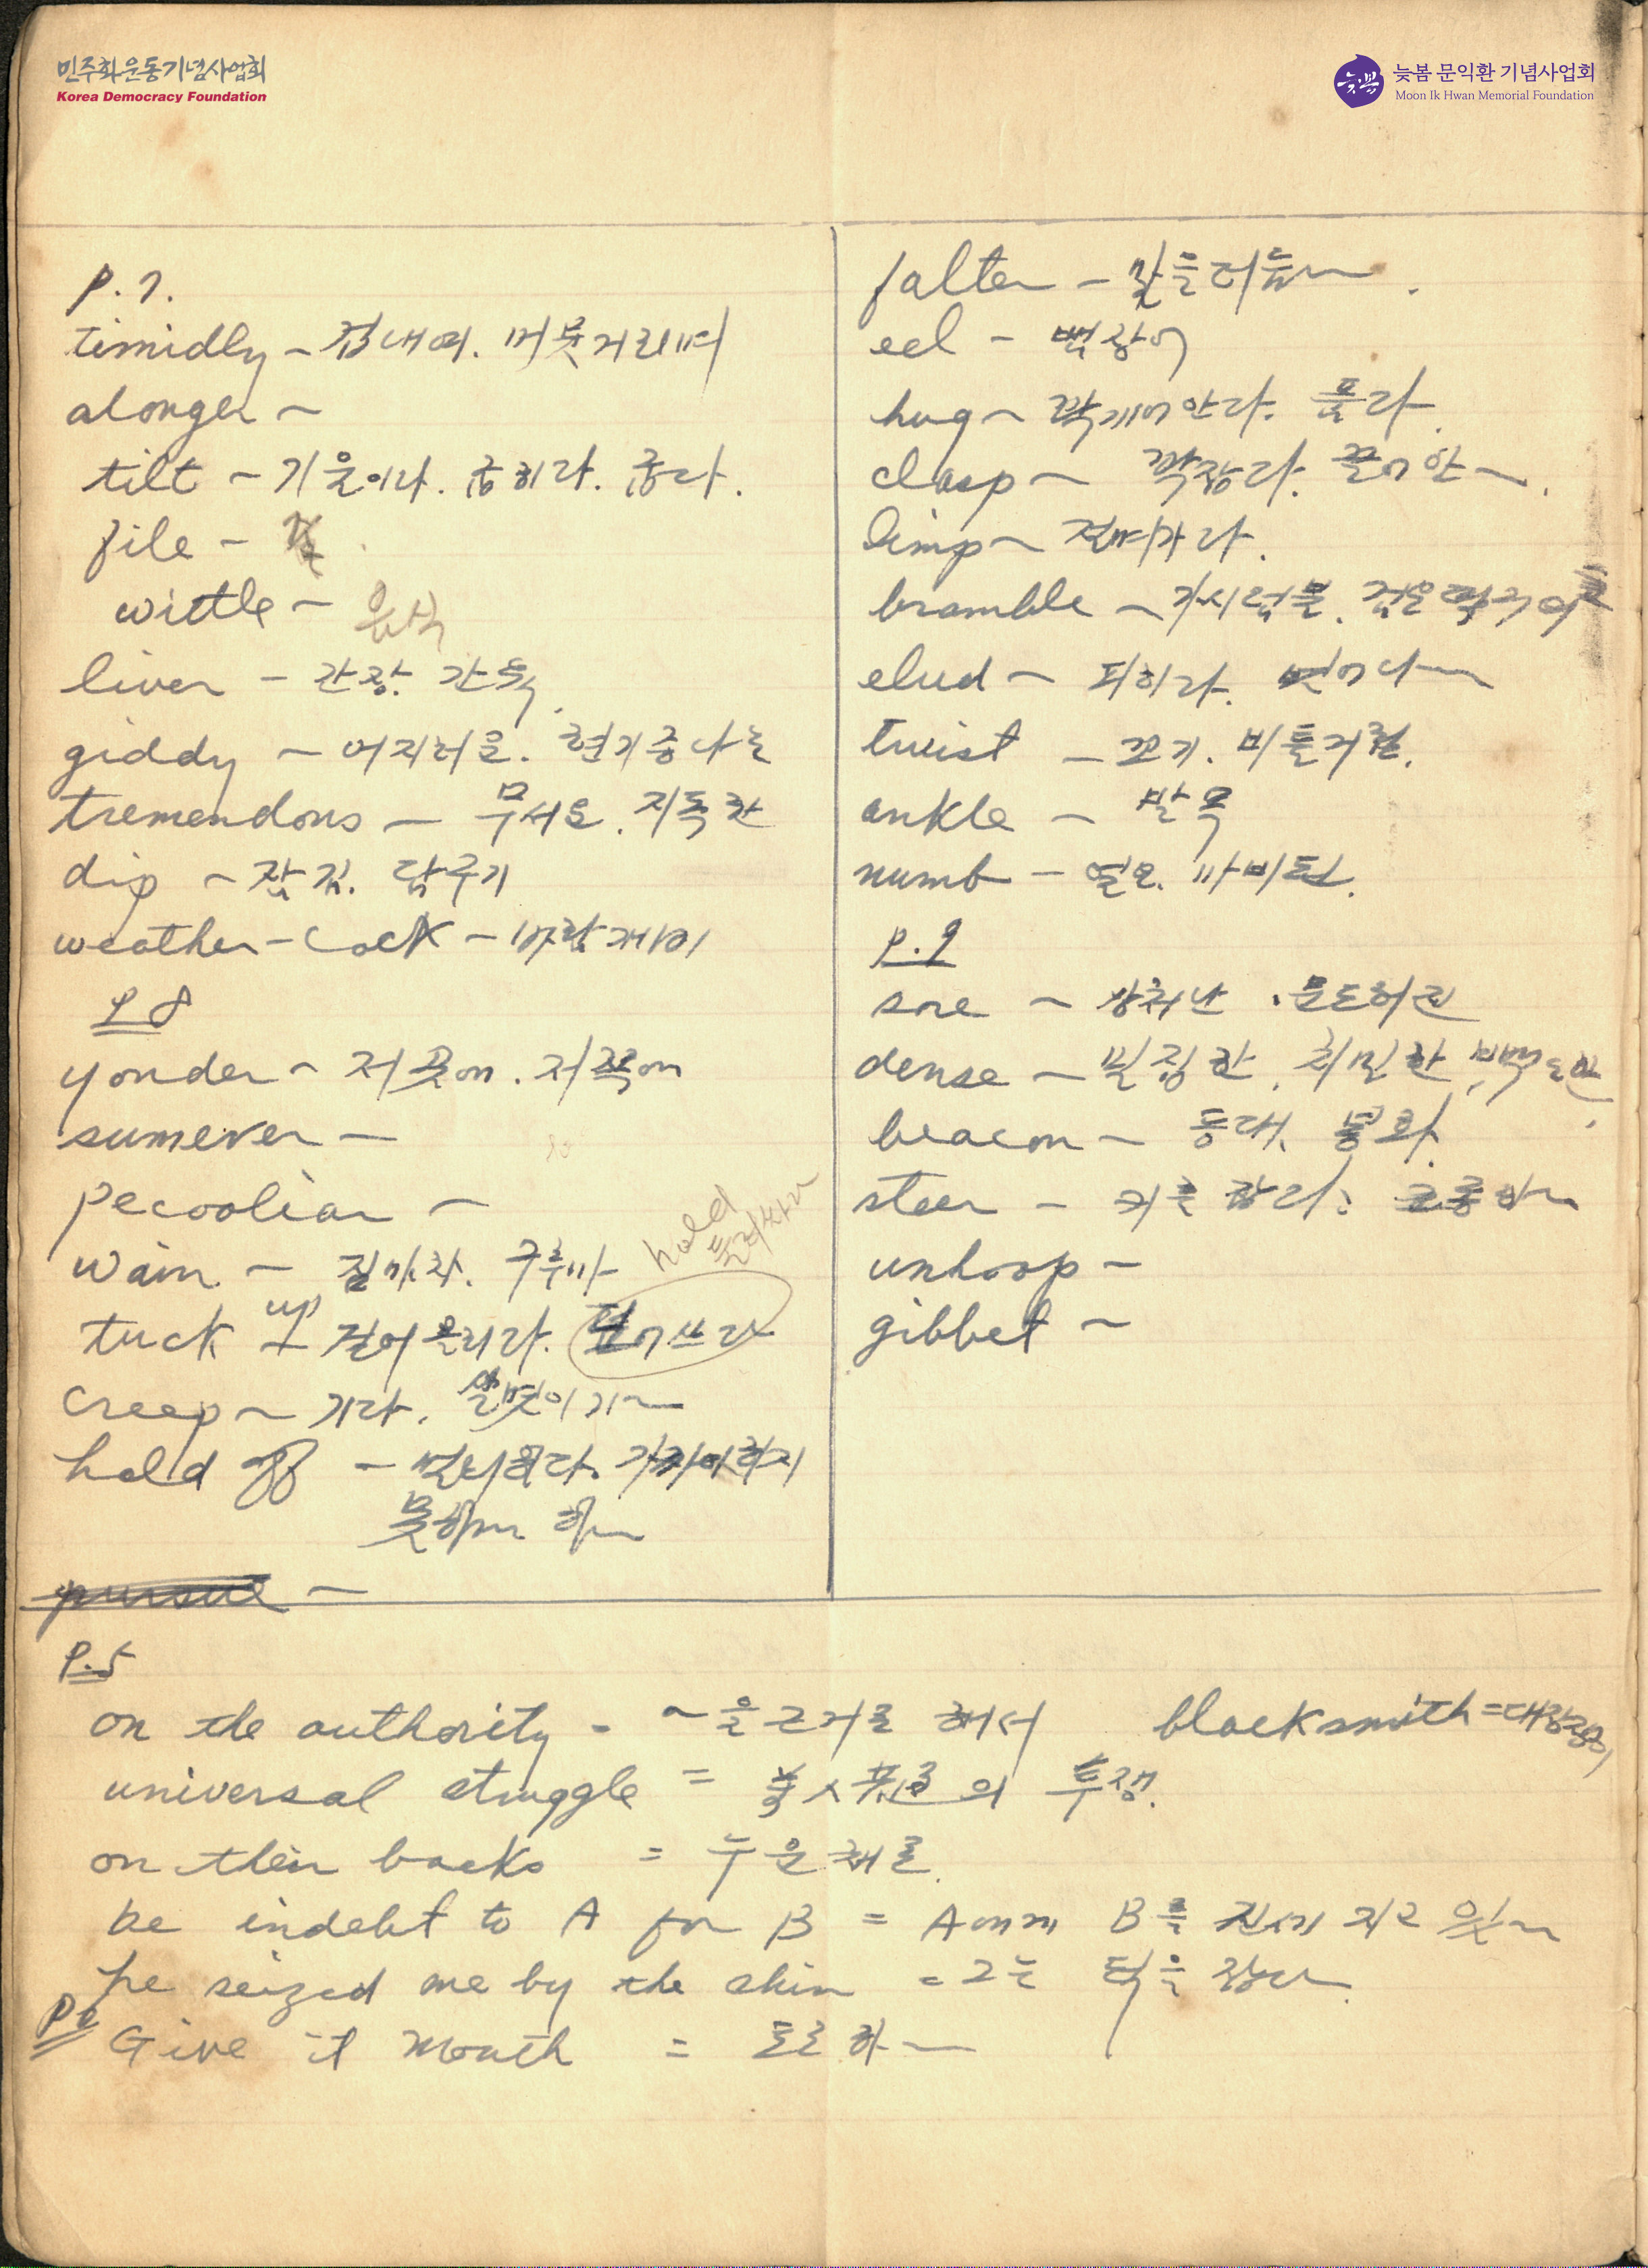 민주화운동기념사업회
Korea Democracy Foundation
늦봄 문익환 기념사업회
Moon Ik Hwan Memorial Foundation
p. 7.
timidly – 겁내여. 머뭇거리며
alonger –
tilt – 기울이다. 굽히다. 굽다.
file –
wittle – 음식
liver – 간장. 간
giddy – 어지러운. 현기증나는
tremendous – 무서운. 지독한
dip – 잠김. 담구기
weather-cock – 바람개비
p 8
yonder – 저곳에. 저쪽에
sumever –
pecoolian –
wain – 짐마차. 구루마
hold
tuck up – 걷어올리다. 덮어쓰다
creep – 기다. 살몃이 기~
hold off – 멀리하다. 가까이하지
못하게 하~
pursue –
falter – 말을 더듬~.
eel – 뱀장어
hug – 꽉 께어안다. 품다.
clasp – 꽉잡다. 끌어안~.
limp – 절며가다.
bramble – 가시덤불. 검은
elud – 피하다. 벗어나~
twist – 꼬기. 비틀거림.
ankle – 발목
numb – 얼은. 마비된.
p. 9
sore – 상처난.
dense – 밀집한. 치밀한.
beacon – 등대. 봉화.
steer – 키를 잡다. 조종하~
unhoop –
gibbet –
P. 5
on the authority – ~을 근거로 해서
blacksmith = 대장쟁이
universal struggle = 의 투쟁.
on their backs = 누운 채로.
be indebt to A for B = A에게 B를 신세 지고 있~
he seized me by the chin = 그는 턱을 잡다.
Give it mouth = 토로하~